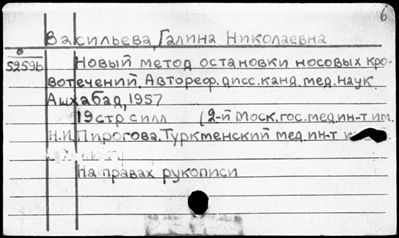 6
Васильева, Галина Николаевна
52596
Новый метод остановки носовых кро-
вотечений. Автореф. дисс. канд. мед. наук
Ашхабад, 1957
19 стр с илл (2-й Моск. гос. мед ин-т им.
Н.И. Пирогова. Туркменский мед ин-т
На правах рукописи